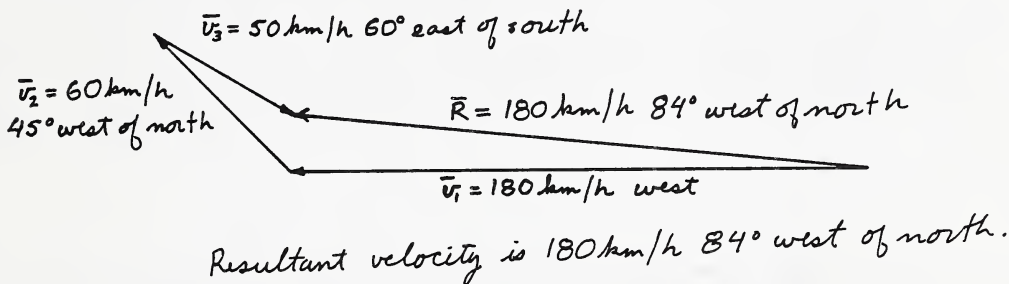 v̄₃ = 50 km/h 60° east of south
v̄₂ = 60 km/h
45° west of north
R̄ = 180 km/h 84° west of north
v̄₁ = 180 km/h west
Resultant velocity is 180 km/h 84° west of north.